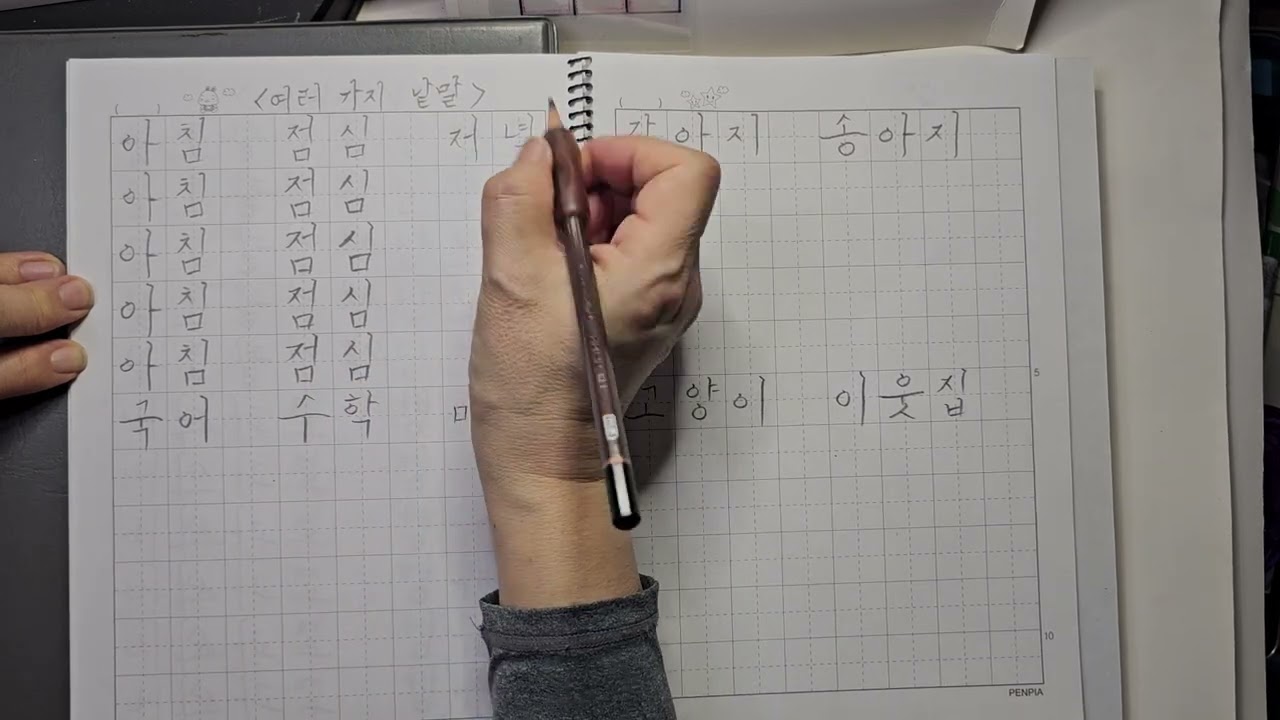 <여러 가지 낱말>
아침 점심 저녁 강아지 송아지
아침 점심
아침 점심
아침 점심
아침 점심
국어 수학 고양이 이웃집
5
10
PENPIA